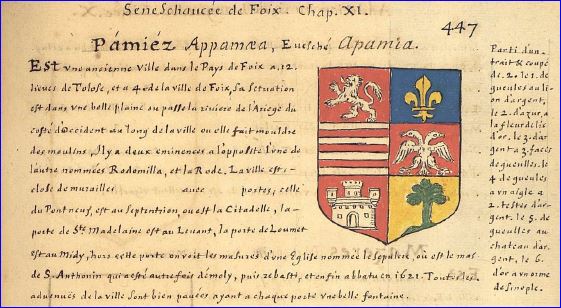 Seneschaucée de Foix. Chap. XI.
447
Pámiéz Appamæa, Euesché Apamia.
Est vne ancienne Ville dans le Pays de Foix a 12.
lieues de Tolose, et a 4 de la ville de Foix, sa scituation
est dans vne belle plaine ou passe la riviere de l'Ariege du
costé d'Occident au long de la ville ou elle fait mouldre
des moulins, Il y a deux eminences a l'opposite l'vne de
l'autre nommées Rodemilla, et la Rode. La ville est:
close de murailles auec portes, celle
du Pont neuf, est au Septention, ou est la Citadelle, la
porte de Ste Madelaine est au Leuant, la porte de Loumet
est au Midy, hors cette porte on voit les masures d'vne Eglise nommée le sepulcre, ou est le mas
de S. Anthonin qui a esté autrefois démoly, puis rebasti, et enfin abbatu en 1621. Toutes les
aduenues de la ville sont bien pauées ayant a chaque porte vne belle fontaine.
Parti d'un
trait & coupé
de 2. le 1. de
gueules au li
on d'argent,
le 2. d'azur, a
la fleur de lis
d'or, le 3. d'ar
gent a 3. faces
de gueulles. le
4 de gueules
a vn aigle a
2. testes d'ar
gent. le 5. de
gueulles au
chateau d'ar
gent, le 6.
d'or a vn orme
de sinople.